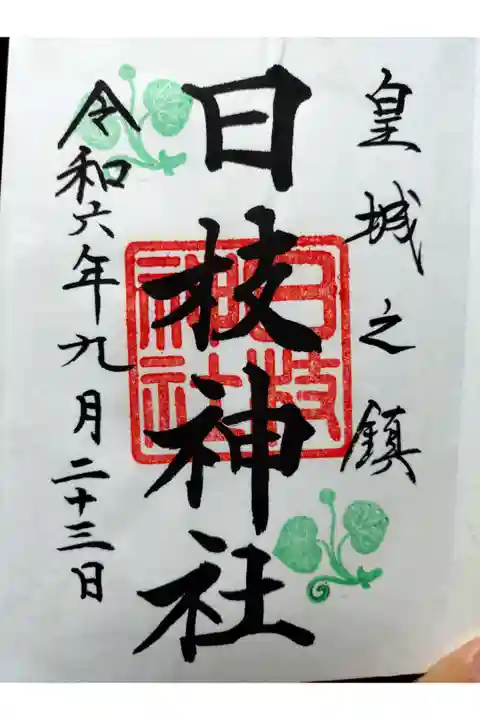 皇城之鎮
日枝神社
日枝神社
令和六年九月二十三日